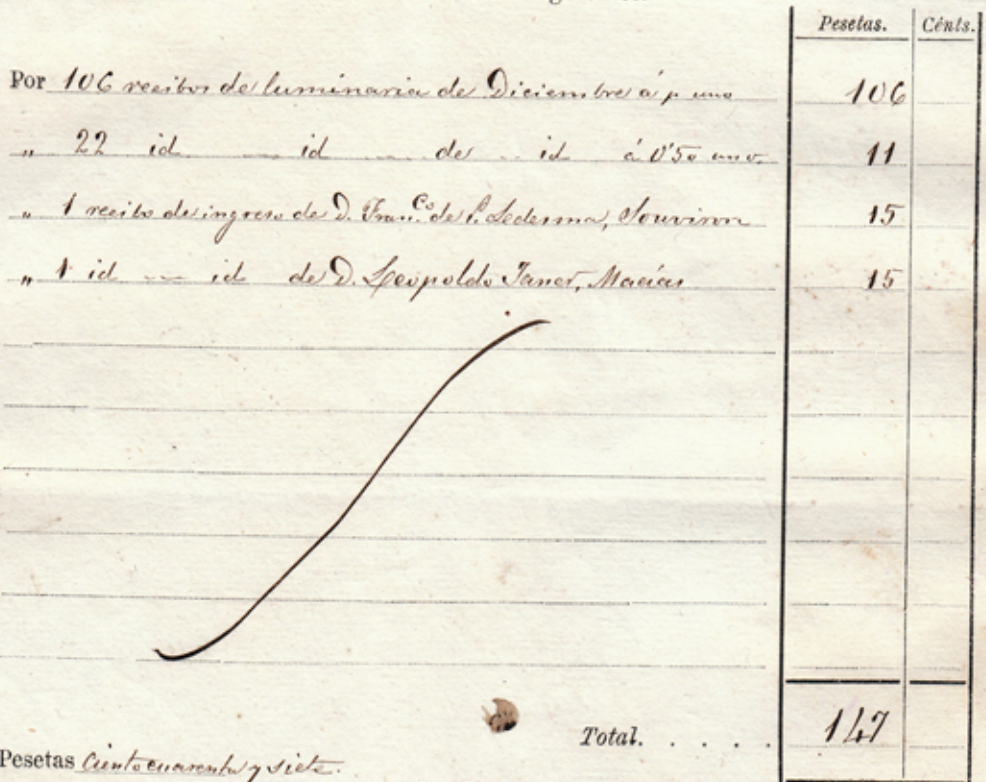 Pesetas. Cénts.
Por 106 recibos de luminaria de Diciembre á p. una 106
" 22 id id de id á 0'50 uno. 11
" 1 recibo de ingreso de D. Franco de P. Ledesma, Souviron 15
" 1 id id de D. Leopoldo Janer, Macías 15
Total. . . . . 147
Pesetas Ciento cuarenta y siete.